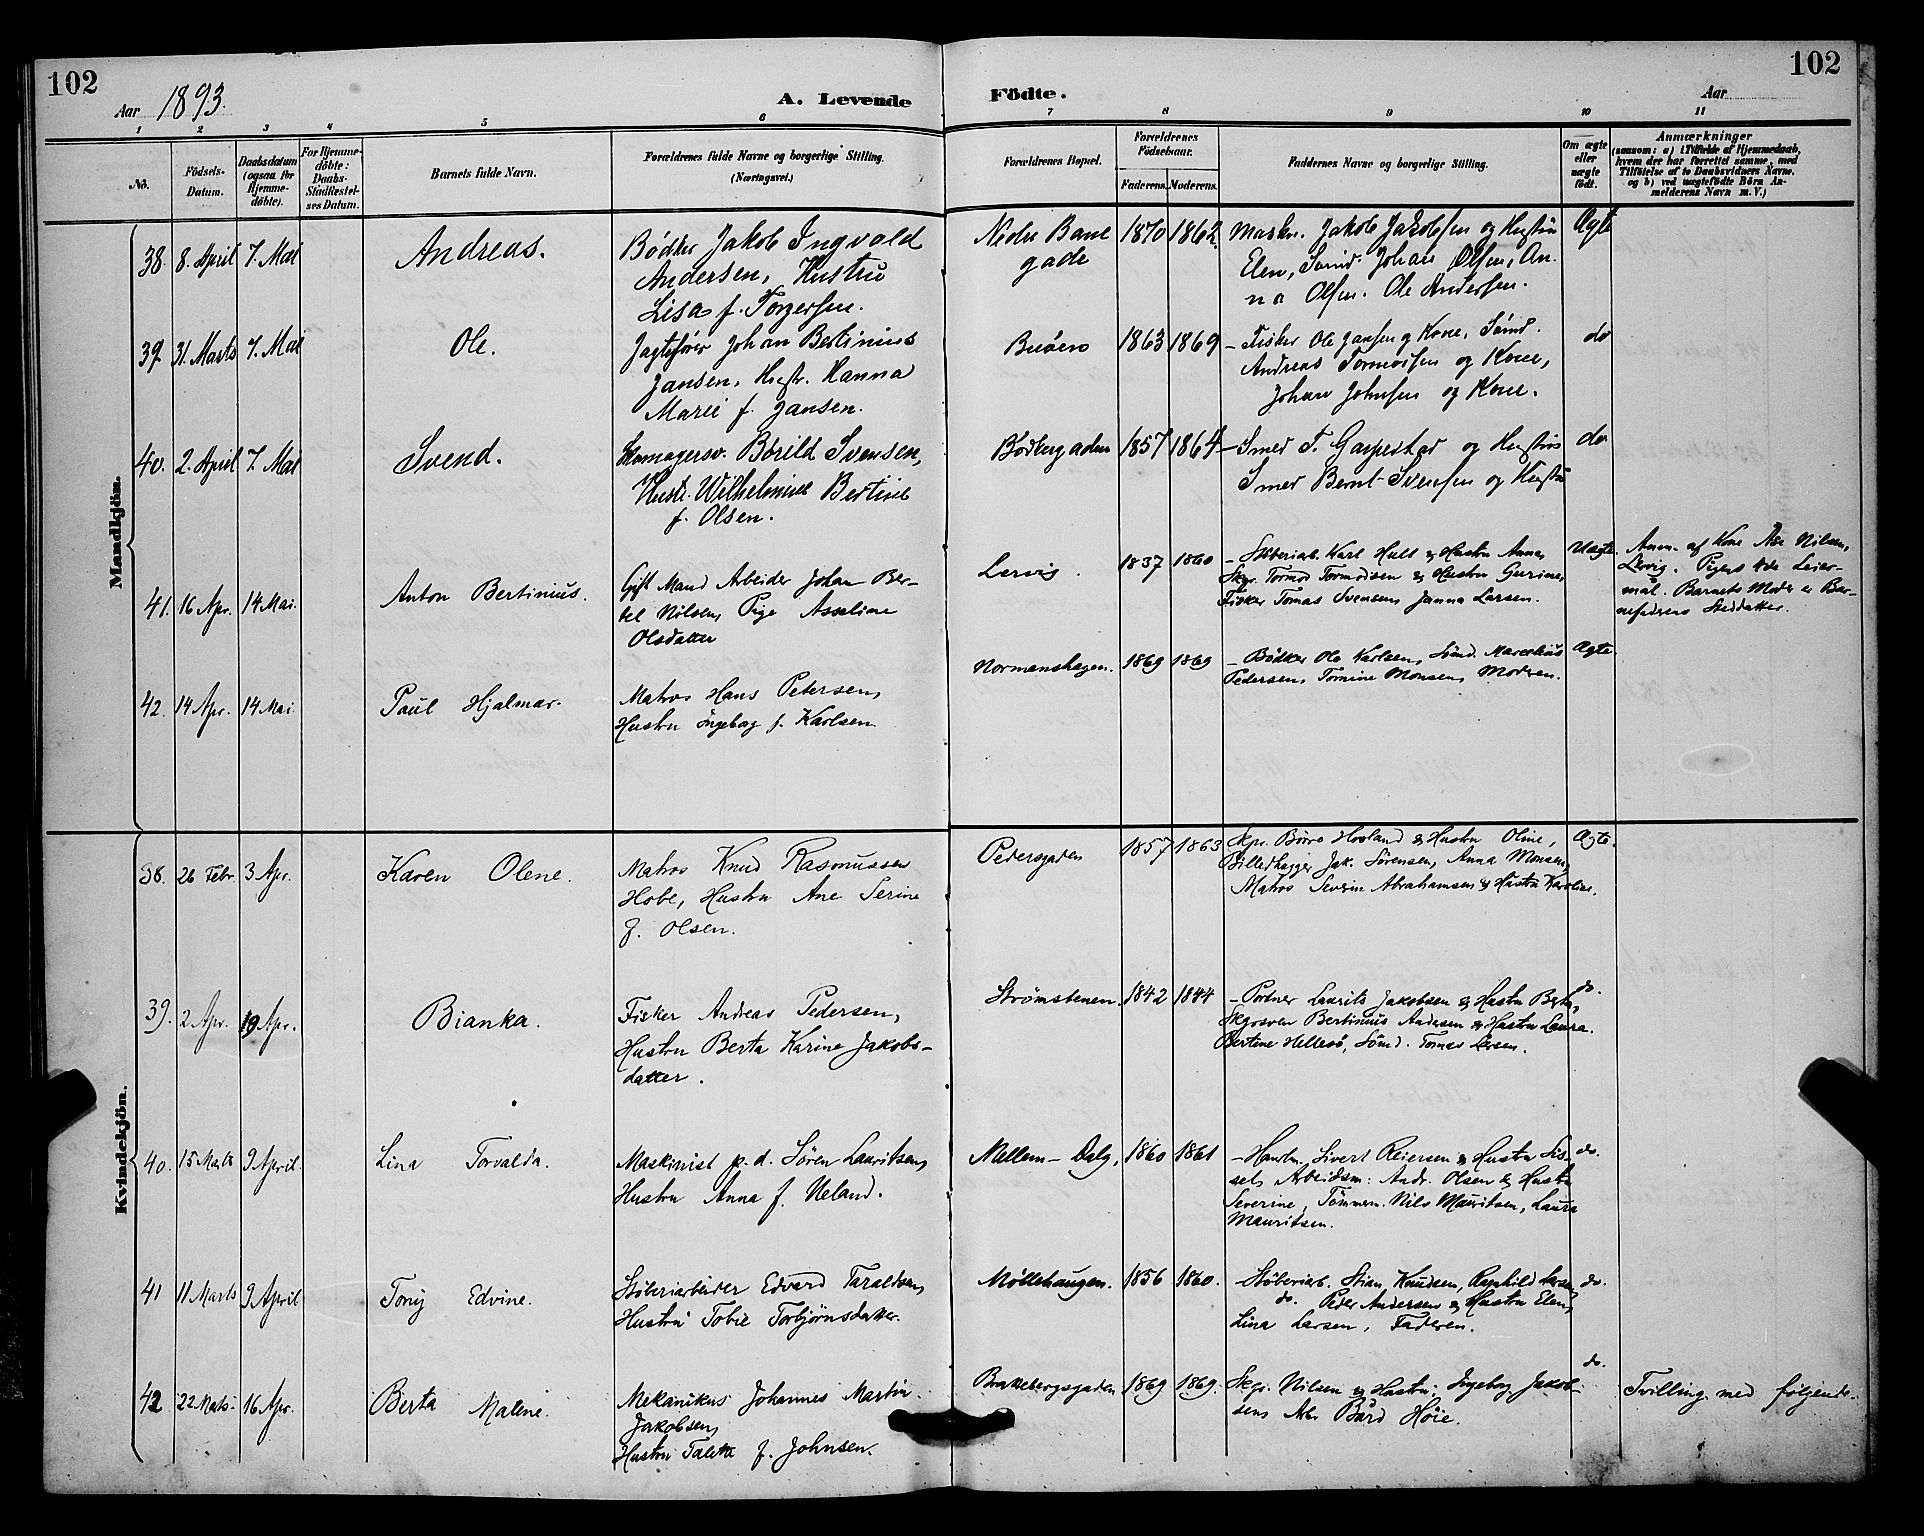 102
102
Aar 1893.
A. Levende
Födte.
Aar
1 2 3 4 5 6 7 8 9 10 11
No.
Födsels-Datum.
Daabsdatum (ogsaa for Hjemme-döbte).
For Hjemme-döbte: Daabs-Stadfæstel-ses Datum.
Barnets fulde Navn.
Forældrenes fulde Navne og borgerlige Stilling. (Næringsvei.)
Forældrenes Bopæl.
Forældrenes Födselsaar.
Faderens. Moderens.
Faddernes Navne og borgerlige Stilling.
Om ægte eller uægte født.
Anmærkninger
(saasom: a) i Tilfælde af Hjemmedaab, hvem der har forrettet samme, med Tilföielse af to Daabsvidners Navne, og b) ved uægtefödte Börn Anmelderens Navn m. V.)
Mandkjön.
38. 8. April 7. Mai Andreas. Bødker Jakob Ingvald
Andersen, Hustru
Lisa f. Torgersen.
Nedre Bane
gade
1870 1862. Maskn. Jakob Jakobsen og Hustru
Elen, Sømd. Johan Olsen, An-
na Olsen. Ole Andersen.
Ægte
39. 31. Marts 7. Mai Ole. Jagtefører Johan Bertinius
Jansen, Hustr. Hanna
Marie f. Jansen.
Buøen 1863 1869 – Fisker Ole Jansen og Kone, Sømd.
Andreas og Kone,
Johan Johnsen og Kone.
do
40. 2. April 7. Mai Svend. Skomagersv. Børild Svensen,
Hustr. Wilhelmine Bertine
f. Olsen.
Bødkergaden 1857 1864 – Smed T. Gaspestad og Hustru
Smed Bernt Svensen og Hustru
do
41. 16 Apr. 14 Mai. Anton Bertinius. Gift Mand Arbeider Johan Ber-
tel Nilsen, Pige Asseline
Olsdatter
Lervig. 1837 1860 – Støberiarb. Karl Hult & Hustru Anna,
Skpr. Tormod Tormodsen & Hustru Gurine,
Fisker Tomas Svensen, Janna Larsen.
Uægte. Anm. af Kone Åse Nilsen,
Lervig. Pigens 1ste Leier-
mål. Barnets Moder er Bar-
nefadrens Steddatter.
42. 14 Apr. 14 Mai. Paul Hjalmar. Matros Hans Petersen,
Hustru Ingeborg f. Karlsen.
Normanshagen. 1869 1869 – Bødker Ole Karlsen, Sømd. Marselius
Pedersen, Tomine Monsen, Modren.
Ægte
Kvindekjön.
38. 26 Febr. 3 Apr. Karen Olene. Matros Knud Rasmussen
Hobe, Hustru Ane Serine
f. Olsen.
Pedersgaden 1857 1863 Skpr. Børre Hovland & Hustru Oline,
Billedhugger Jak. Sørensen, Anna Monsen,
Matros Severin Abrahamsen & Hustru Karoline.
Ægte.
39. 2 Apr. 19 Apr. Bianka. Fisker Andreas Pedersen,
Hustru Berta Karine Jakobs-
datter.
Strømstenen. 1842 1844 – Portner Laurits Jakobsen & Hustru Berta,
Skrsven Bertinius Andersen & Hustru Laura.
Bertine Hellesø, Sømd. Tomas Larsen.
do.
40. 15 Marts 9 April. Lina Torvalda. Maskinist p.d. Søren Lauritsen,
Hustru Anna f. Ueland.
Mellem-Dalg. 1860 1861 – Handm. Sivert Reiersen & Hustru Sis-
sel, Arbeidsm. Andr. Olsen & Hustru
Severine, Tømmerm. Nils Mauritsen, Laura
Mauritsen.
do.
41 11 Marts 9 April Tony Edvine. Støberiarbeider Edvard Taraldsen,
Hustru Tobie Torbjørnsdatter.
Møllehaugen. 1856 1860. – Støberiarb. Stian Knudsen, Ragnhild Larsen
do. Peder Andersen & Hustru Elen,
Lina Larsen, Faderen.
do.
42 22 Mats. 16 Apr. Berta Malene. Mekanikus Johannes Martin
Jakobsen,
Hustru Taletta f. Johnsen.
Brakebergsgaden 1869 1869. Skpr. Nilsen & Hustru, Ingeborg Jakob-
sen, Arb. Bård Høie.
do.
Tvilling med følgende.